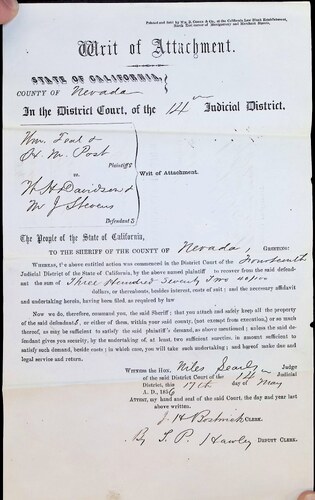 Printed and Sold by Wm. B. Cooke & Co., at the California Law Blank Establishment,
North East corner of Montgomery and Merchant Streets.
Writ of Attachment.
STATE OF CALIFORNIA,
COUNTY OF Nevada
In the District Court, of the 14th Judicial District.
Wm. Teal &
H. M. Post
Plaintiffs
vs
Writ of Attachment.
W H Davidson &
M J Stevens
Defendants
The People of the State of California,
TO THE SHERIFF OF THE COUNTY OF Nevada, GREETING:
WHEREAS, the above entitled action was commenced in the District Court of the Fourteenth
Judicial District of the State of California, by the above named plaintiff to recover from the said defend-
ant the sum of Three Hundred Seventy Two
dollars, or thereabouts, besides interest, costs of suit; and the necessary affidavit
and undertaking herein, having been filed as required by law
Now we do, therefore, command you, the said Sheriff; that you attach and safely keep all the property
of the said defendants, or either of them, within your said county, (not exempt from execution,) or so much
thereof, as may be sufficient to satisfy the said plaintiff's demand, as above mentioned; unless the said de-
fendant gives you security, by the undertaking of, at least two sufficient sureties, in amount sufficient to
satisfy such demand, besides costs; in which case, you will take such undertaking; and hereof make due and
legal service and return.
WITNESS THE HON. Niles Searls Judge
of the said District Court of the 14th Judicial
District, this 17th day of May
A. D. 1856
ATTEST, my hand and seal of said Court, the day and year last
above written.
J. H. Bostwick CLERK.
By T. P. Hawley DEPUTY CLERK.